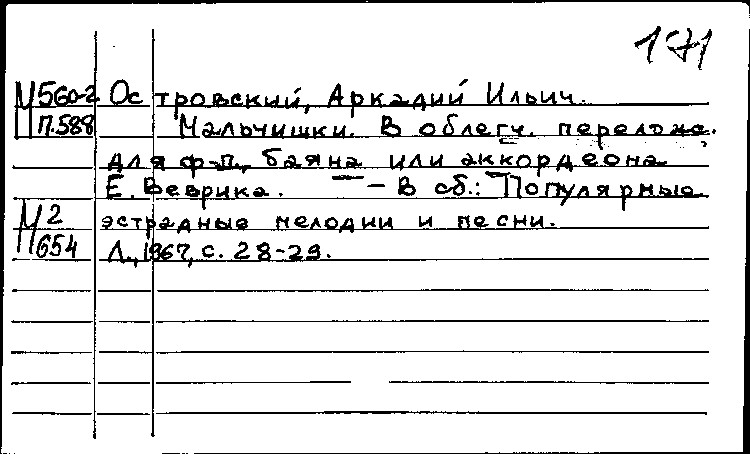 171
М560-2 Островский, Аркадий Ильич.
П.588 Мальчишки. В облегч. перелож.
для ф-п., баяна или аккордеона
Е. Веврика. — В сб.: Популярные
М2 эстрадные мелодии и песни.
654 Л., 1967, с. 28-29.